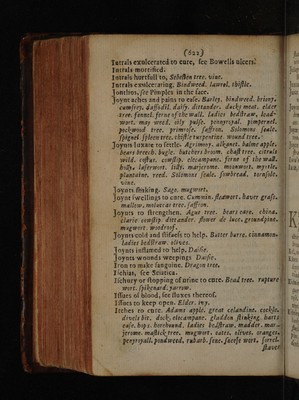 (622)
Intrals exulcerated to cure, see Bowells ulcers.
Intrals mortified:
Intrals hurtfull to, Sebesten tree. vine.
Intrals exulcerating. Bindweed. laurel. thistle.
Jonthos, see Pimples in the face.
Joynt aches and pains to ease. Barley. bindweed. briony.
cumfrey. daffodil. daisy. dittander. ducks meat. elder
tree. fennel. ferne of the wall. ladies bedstraw, lead-
wort. may weed. oily pulse. penyroyal. pimpernel.
pockwood tree. primrose. saffron. Solomons seale.
spignel. spleen tree. thistle turpentine. wound tree.
Joynts luxate to settle. Agrimony. alkanet. balme apple.
beare breech. bugle. butchers broom. chast tree. citrull
wild. costus. cowslip. elecampane. ferne of the wall.
holly. laserwort. lilly. marjerome. moonwort. myrtle.
plantaine. reed. Solomons seale. sowbread. tornsole.
vine.
Joynts stinking. Sage. mugwort.
Joynt swellings to cure. Cummin. fleawort. hares grasse.
mallow. moluccas tree. saffron.
Joynts to strengthen. Ague tree. beares eare. china.
clarie cowslip dittander flower de luce, groundpine.
mugwort. woodroof.
Joynts cold and stifness to help. Butter burre. cinnamon.
ladies bedstraw. olives.
Joynts inflamed to help. Daisie.
Joynts wounds weepings Daisie.
Iron to make sanguine. Dragon tree.
Ischias, see Sciatica.
Ischury or stopping of urine to cure. Bead tree. rupture
wort. spikenard. yarrow.
Issues of blood, see fluxes thereof.
Issues to keep open. Elder. ivy.
Itches to cure. Adams apple. great celandine. cockle,
divels bit. dock, elecampane. gladdin stinking. harts
ease. hops. horehound. ladies bedstraw, madder. mar-
jerome. mastick tree. mugwort. oates. olives. oranges.
penyroyall. pondweed, rubarb. sene. savesse wort. sorrel.
staves